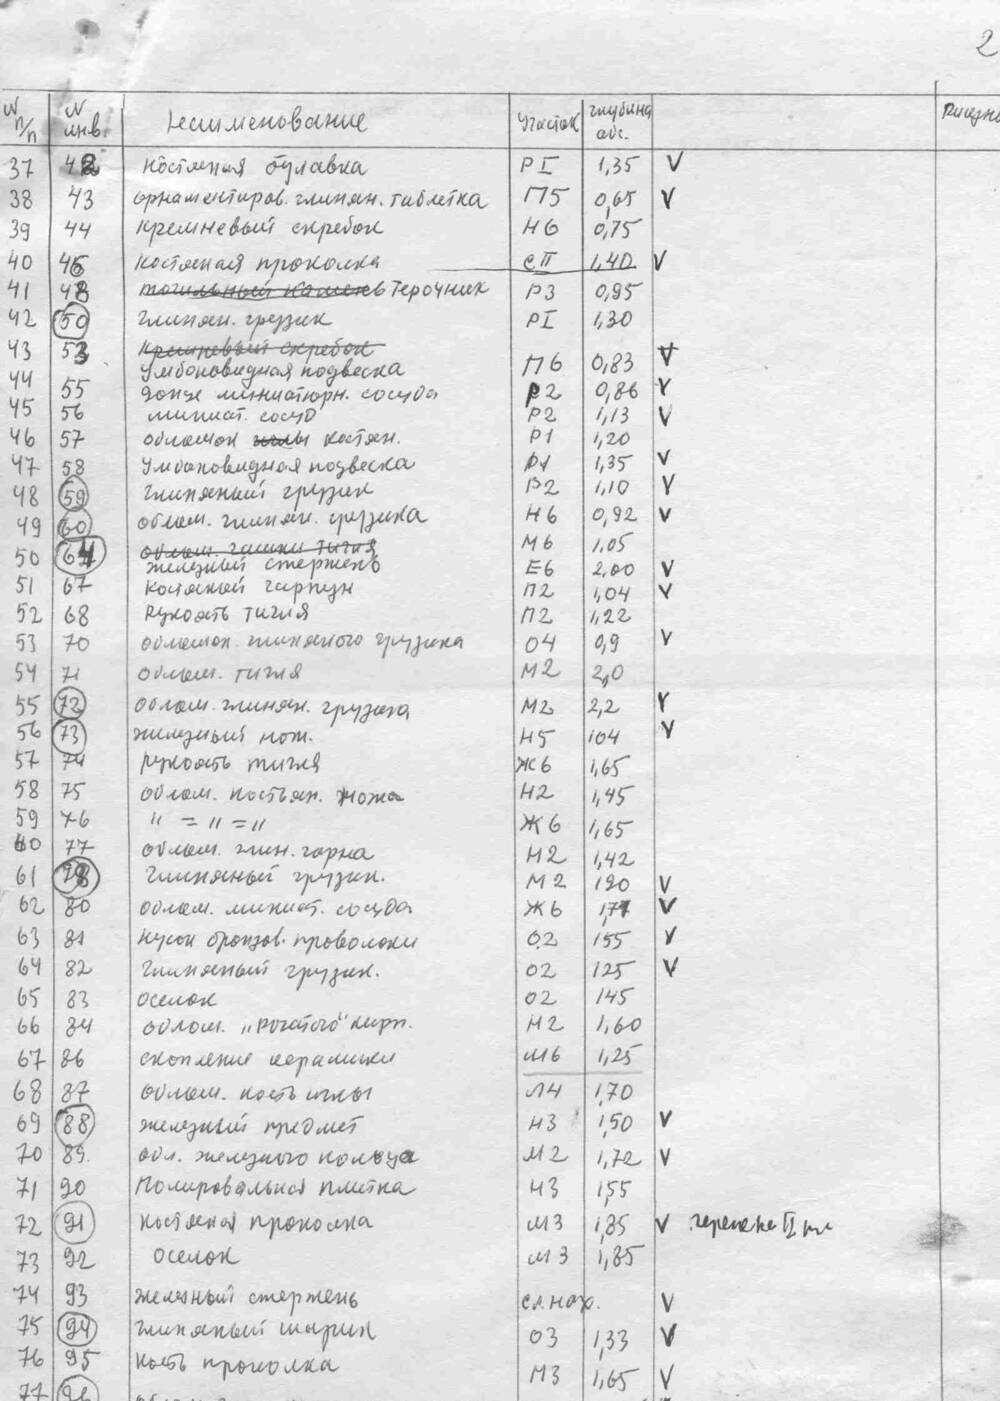 2
N п/п N инв. Наименование Участок глубина абс. Рисунк
37 42 костяная булавка Р I 1,35 V
38 43 орнаментиров. глинян. таблетка П5 0,65 V
39 44 кремневый скребок Н6 0,75
40 46 костяная проколка с II 1,40 V
41 48 точильный камень Терочник Р3 0,95
42 50 глинян. грузик Р I 1,30
43 53 кремневый скребок
умбоновидная подвеска П6 0,83 V
44 55 донце миниатюрн. сосуда Р2 0,86 V
45 56 миниат. сосуд Р2 1,13 V
46 57 обломок иглы костян. Р1 1,20
47 58 умбоновидная подвеска Р1 1,35 V
48 59 глиняный грузик Р2 1,10 V
49 60 облом. глинян. грузика Н6 0,92 V
50 64 облом. чашки тигля М6 1,05
железный стержень Е6 2,00 V
51 67 костяной гарпун П2 1,04 V
52 68 рукоять тигля П2 1,22
53 70 обломок глиняного грузика О4 0,9 V
54 71 облом. тигля М2 2,0
55 72 облом. глинян. грузика М2 2,2 V
56 73 железный нож. Н5 104 V
57 74 рукоять тигля Ж6 1,65
58 75 облом. костян. ножа Н2 1,45
59 76 " = " = " Ж6 1,65
60 77 облом. глин. горна Н2 1,42
61 78 глиняный грузик. М2 190 V
62 80 облом. миниат. сосуда Ж6 1,71 V
63 81 кусок бронзов. проволоки О2 155 V
64 82 глиняный грузик. О2 125 V
65 83 оселок О2 145
66 84 облом. „рогатого" кирп. Н2 1,60
67 86 скопление керамики М6 1,25
68 87 облом. кость иглы Л4 1,70
69 88 железный предмет Н3 1,50 V
70 89. обл. железного кольца М2 1,72 V
71 90 Полировальная плитка Н3 1,55
72 91 костяная проколка М3 1,85 V
73 92 оселок М3 1,85
74 93 железный стержень сл. нах. V
75 94 глиняный шарик О3 1,33 V
76 95 кость проколка М3 1,65 V
77 96